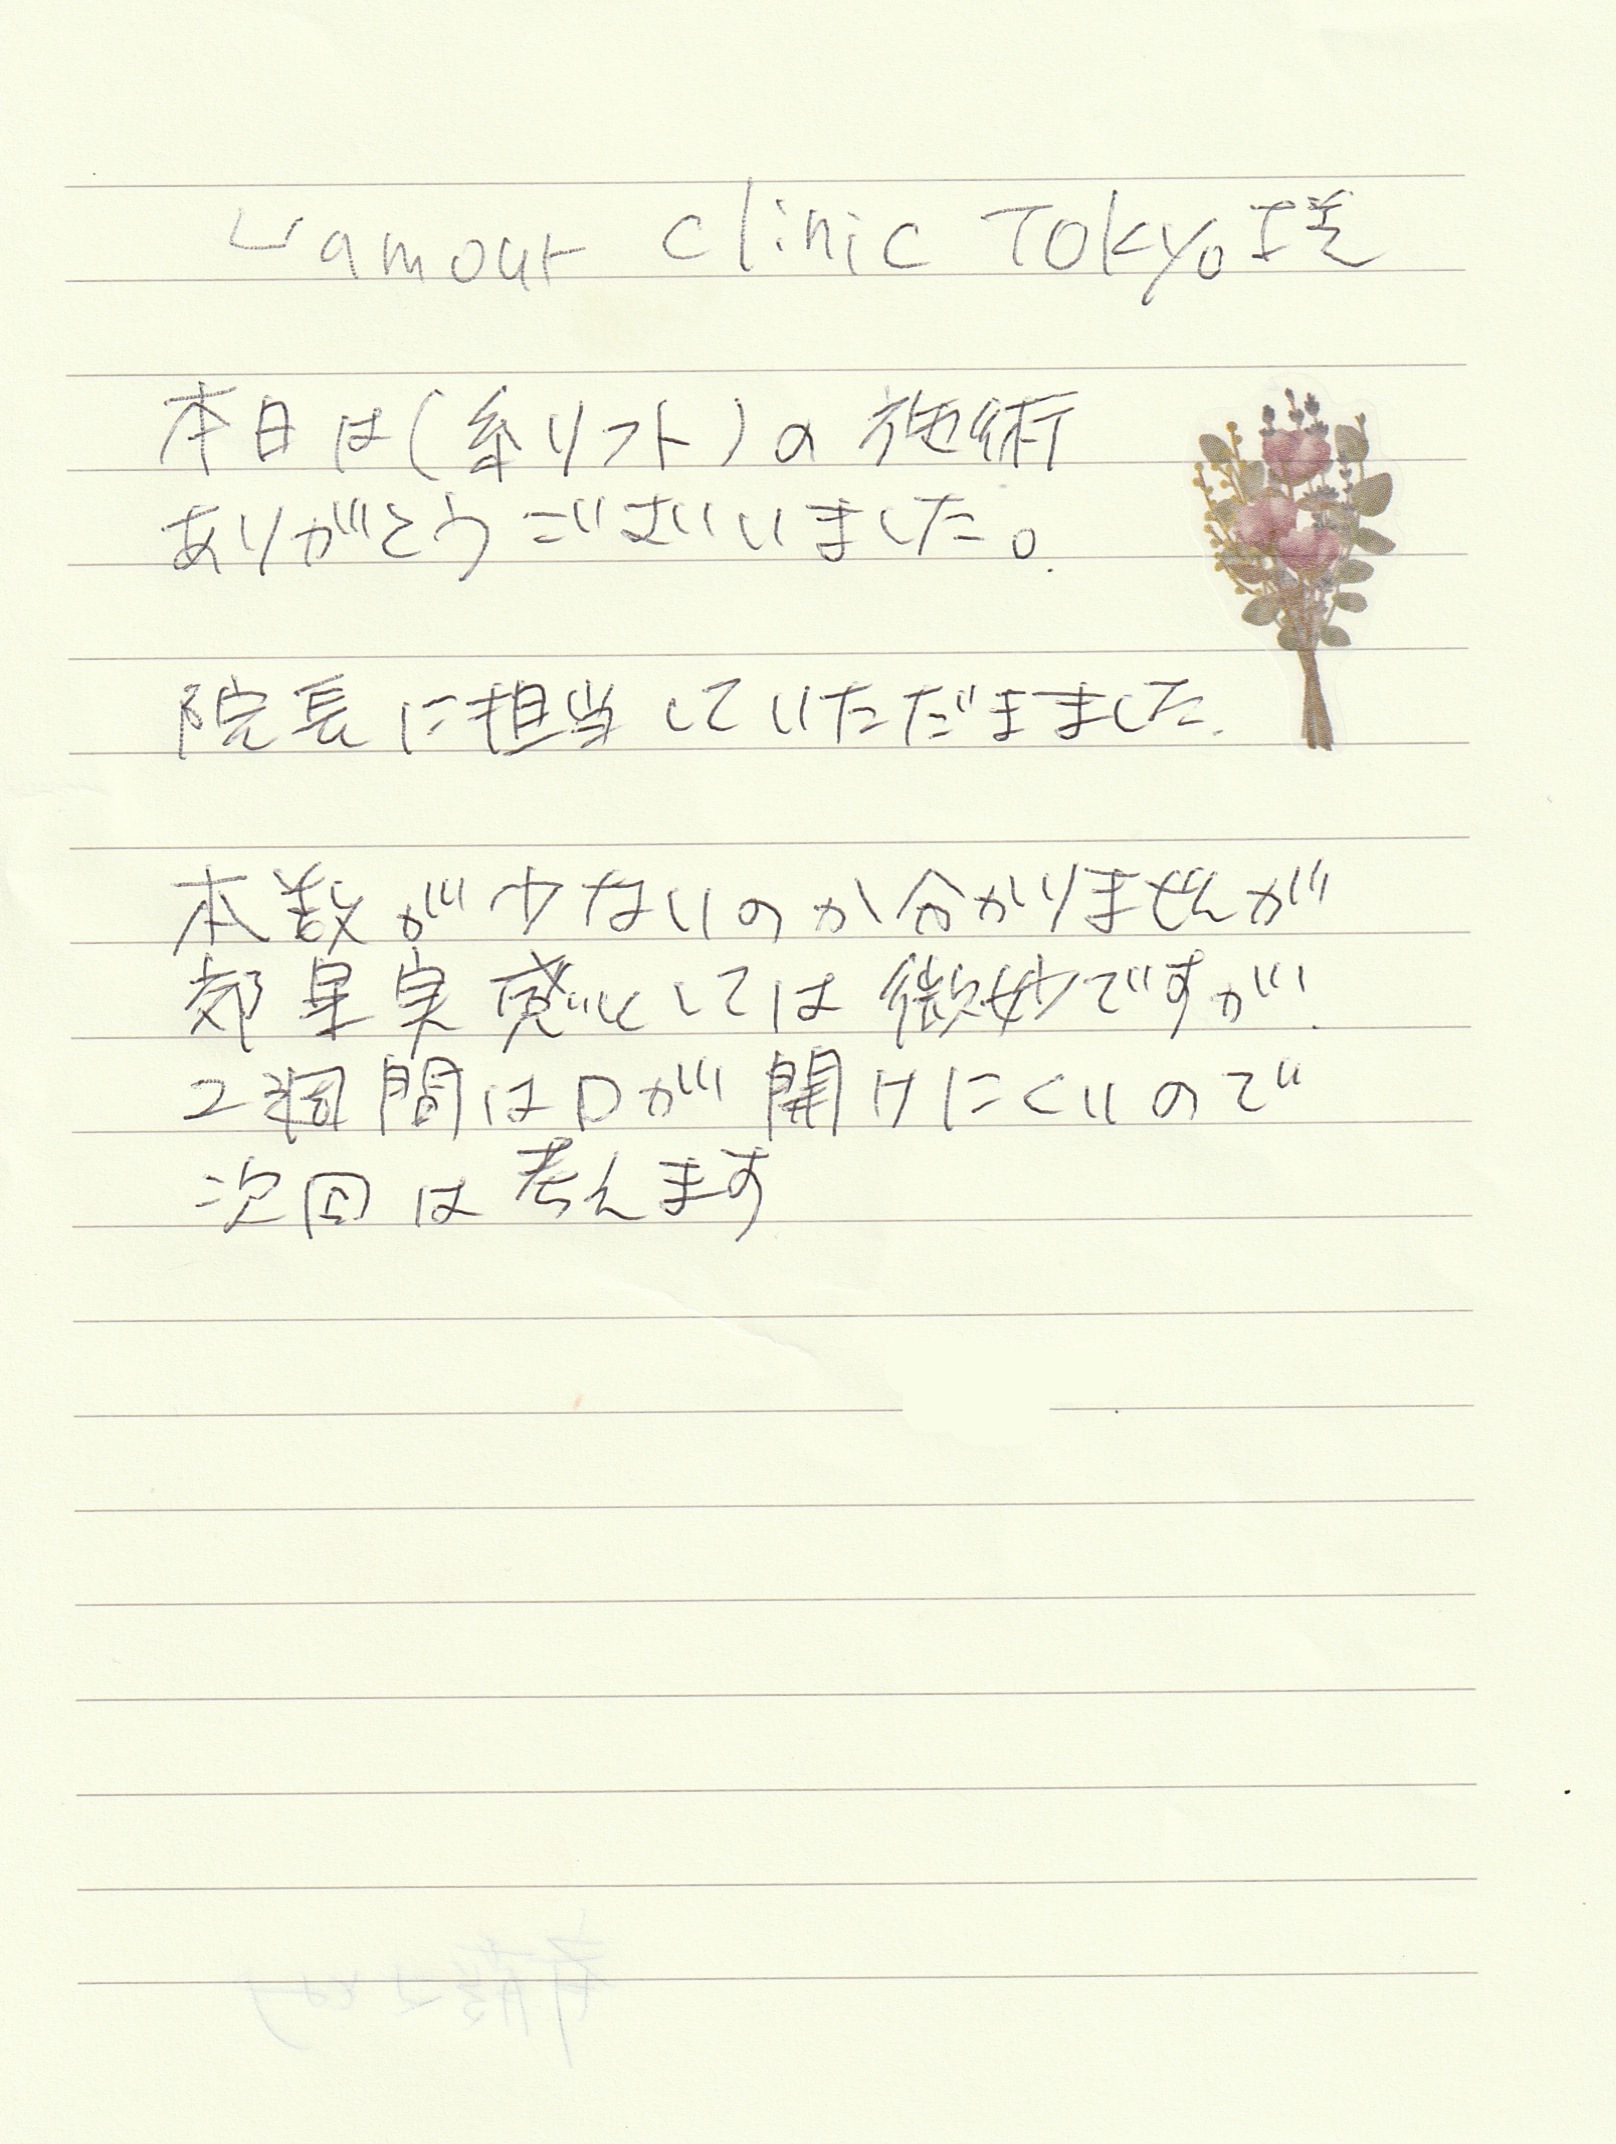 L'amour clinic Tokyo様
本日は(糸リフト)の施術
ありがとうございいました。
院長に担当していただままました.
本数が少ないのか分かりませんが
効果実感としては微妙ですが.
2週間は口が開けにくいので
次回は考えます